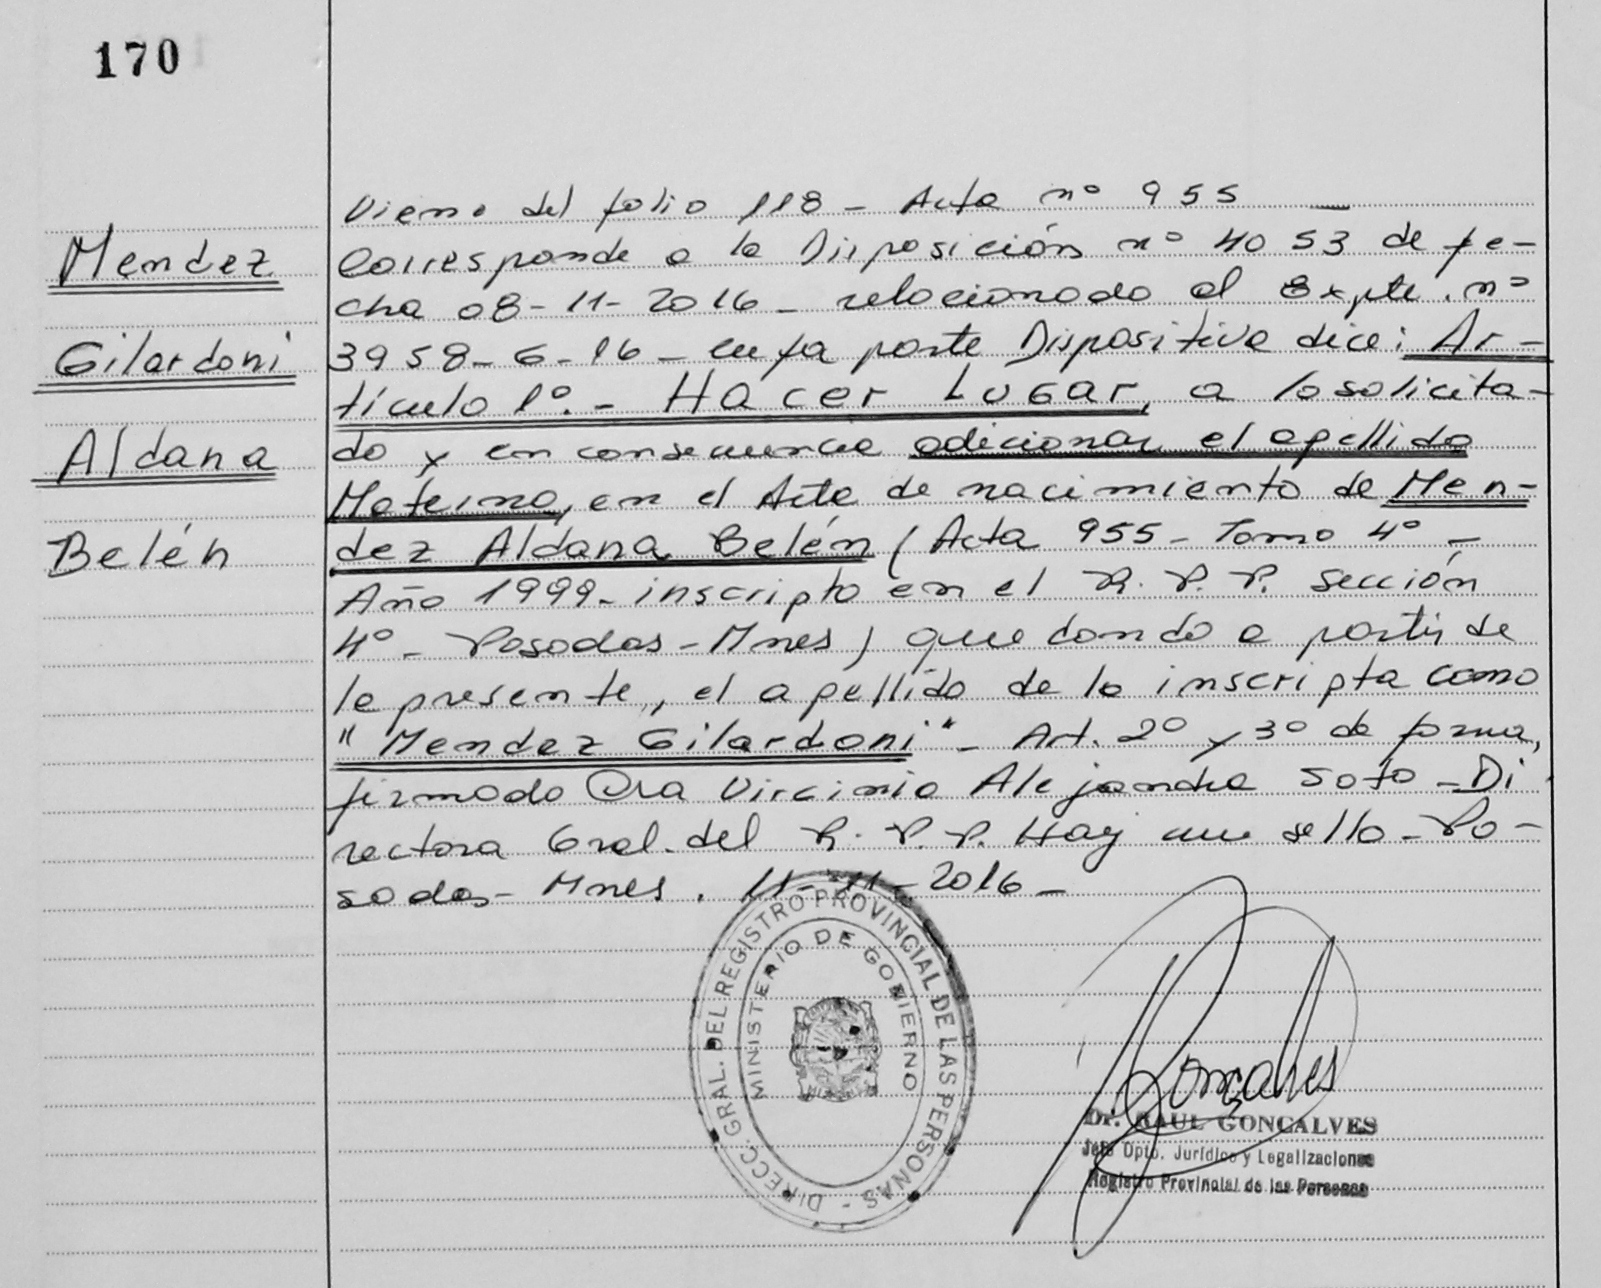 170
Mendez
Gilardoni
Aldana
Belén
Viene del folio 118 - Acta nº 955 —
Corresponde a la Disposición nº 4053 de fe-
cha 08-11-2016 - relacionado al Expte. nº
3958-G-16 - cuya parte Dispositiva dice: Ar-
tículo 1º.- Hacer Lugar, a lo solicita-
do y en consecuencia adicionar el apellido
Materno, en el Acta de nacimiento de Men-
dez Aldana Belén (Acta 955 - Tomo 4º -
Año 1999 - inscripto en el R.P.P. Sección
4º - Posadas - Mnes) quedando a partir de
la presente, el apellido de la inscripta como
"Mendez Gilardoni" - Art. 2º y 3º de forma,
firmado Dra Virginia Alejandra Soto - Di
rectora Gral. del R.P.P. Hay un sello - Po-
sadas - Mnes. 11-11-2016 -
DIRECC. GRAL. DEL REGISTRO PROVINCIAL DE LAS PERSONAS -
MINISTERIO DE GOBIERNO
Gonçalves
Dr. RAUL GONCALVES
Jefe Dpto. Jurídico y Legalizaciones
Registro Provincial de las Personas